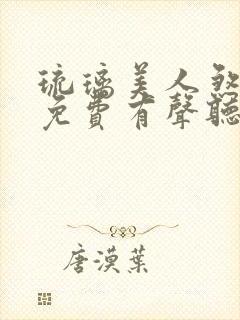 琉璃美人煞
免費有聲聽
唐漠葉